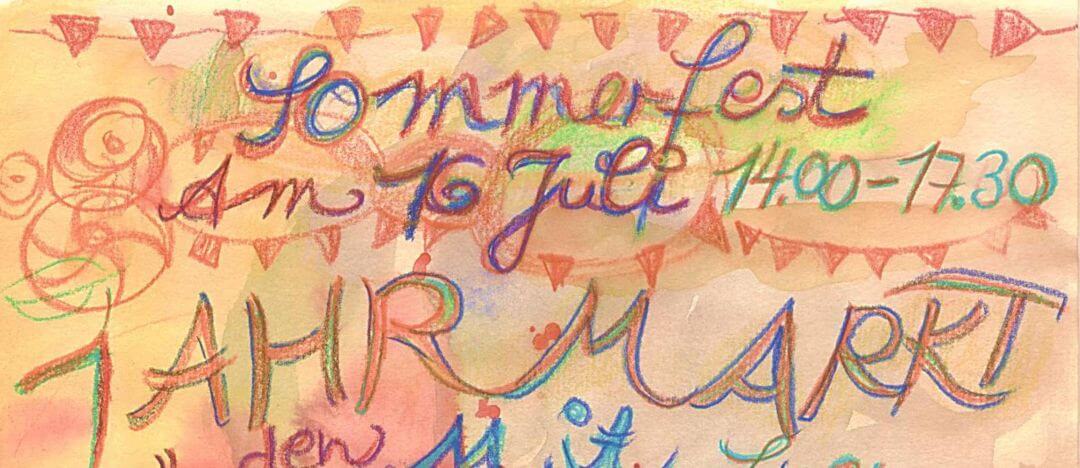 Sommerfest
Am 16 Juli 14.00-17.30
JAHRMARKT
den Mit